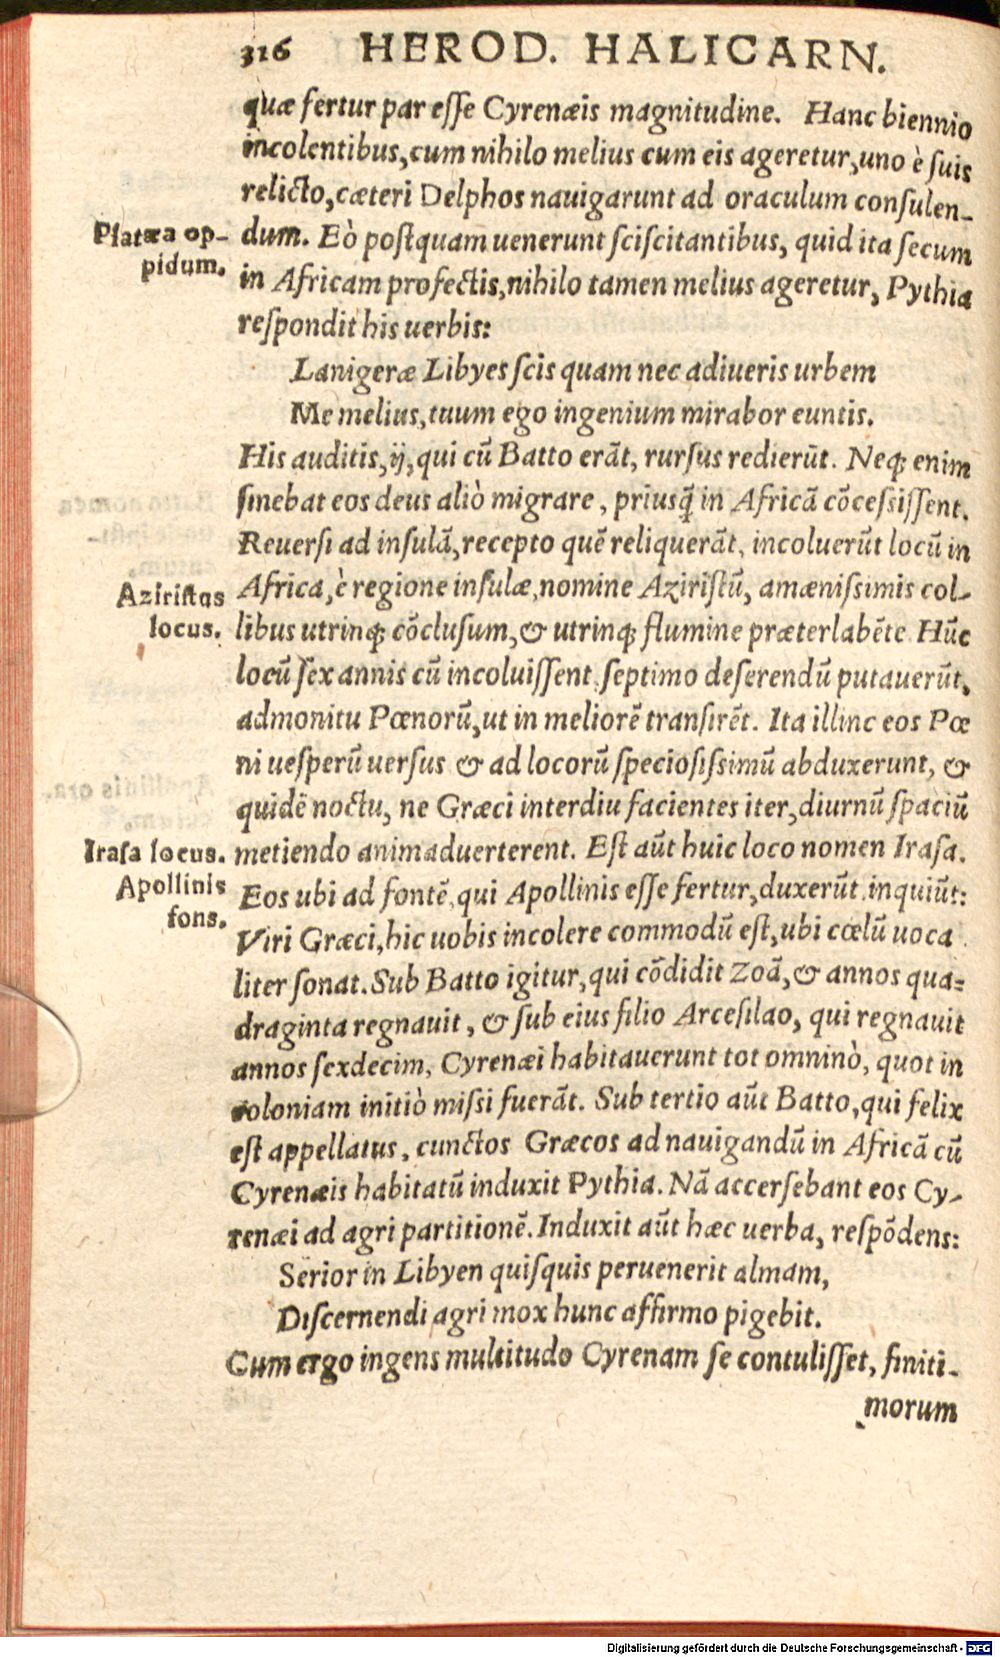 316 HEROD. HALICARN.
quæ fertur par eſſe Cyrenæis magnitudine. Hanc biennio
incolentibus, cum nihilo melius cum eis ageretur, uno è ſuis
relicto, cæteri Delphos nauigarunt ad oraculum conſulen-
Platæa op-
pidum.
dum. Eò poſtquam uenerunt ſciſcitantibus, quid ita ſecum
in Africam profectis, nihilo tamen melius ageretur, Pythia
reſpondit his uerbis:
Lanigeræ Libyes ſcis quam nec adiueris urbem
Me melius, tuum ego ingenium mirabor euntis.
His auditis, ij, qui cũ Batto erãt, rurſus redierũt. Neq; enim
ſinebat eos deus aliò migrare, priusq̃ in Africã cõceſsiſſent.
Reuerſi ad inſulã, recepto quẽ reliquerãt, incoluerũt locũ in
Aziriſtus
locus.
Africa, è regione inſulæ, nomine Aziriſtũ, amæniſsimis col-
libus utrinq; cõcluſum, & utrinq; flumine præterlabẽte Hũc
locũ ſex annis cũ incoluiſſent ſeptimo deſerendũ putauerũt,
admonitu Pœnorũ, ut in meliorẽ tranſirẽt. Ita illinc eos Pœ
ni ueſperũ uerſus & ad locorũ ſpecioſiſsimũ abduxerunt, &
quidẽ noctu, ne Græci interdiu facientes iter, diurnũ ſpaciũ
Iraſa locus.
metiendo animaduerterent. Eſt aũt huic loco nomen Iraſa.
Apollinis
fons.
Eos ubi ad fontẽ, qui Apollinis eſſe fertur, duxerũt inquiũt:
Viri Græci, hic uobis incolere commodũ eſt, ubi cœlũ uoca
liter ſonat. Sub Batto igitur, qui cõdidit Zoã, & annos qua-
draginta regnauit, & ſub eius filio Arceſilao, qui regnauit
annos ſexdecim, Cyrenæi habitauerunt tot omninò, quot in
coloniam initiò miſsi fuerãt. Sub tertio aũt Batto, qui felix
eſt appellatus, cunctos Græcos ad nauigandũ in Africã cũ
Cyrenæis habitatũ induxit Pythia. Nã accerſebant eos Cy-
renæi ad agri partitionẽ. Induxit aũt hæc uerba, reſpõdens:
Serior in Libyen quiſquis peruenerit almam,
Diſcernendi agri mox hunc affirmo pigebit.
Cum ergo ingens multitudo Cyrenam ſe contuliſſet, finiti-
morum
Digitalisierung gefördert durch die Deutsche Forschungsgemeinschaft - DFG